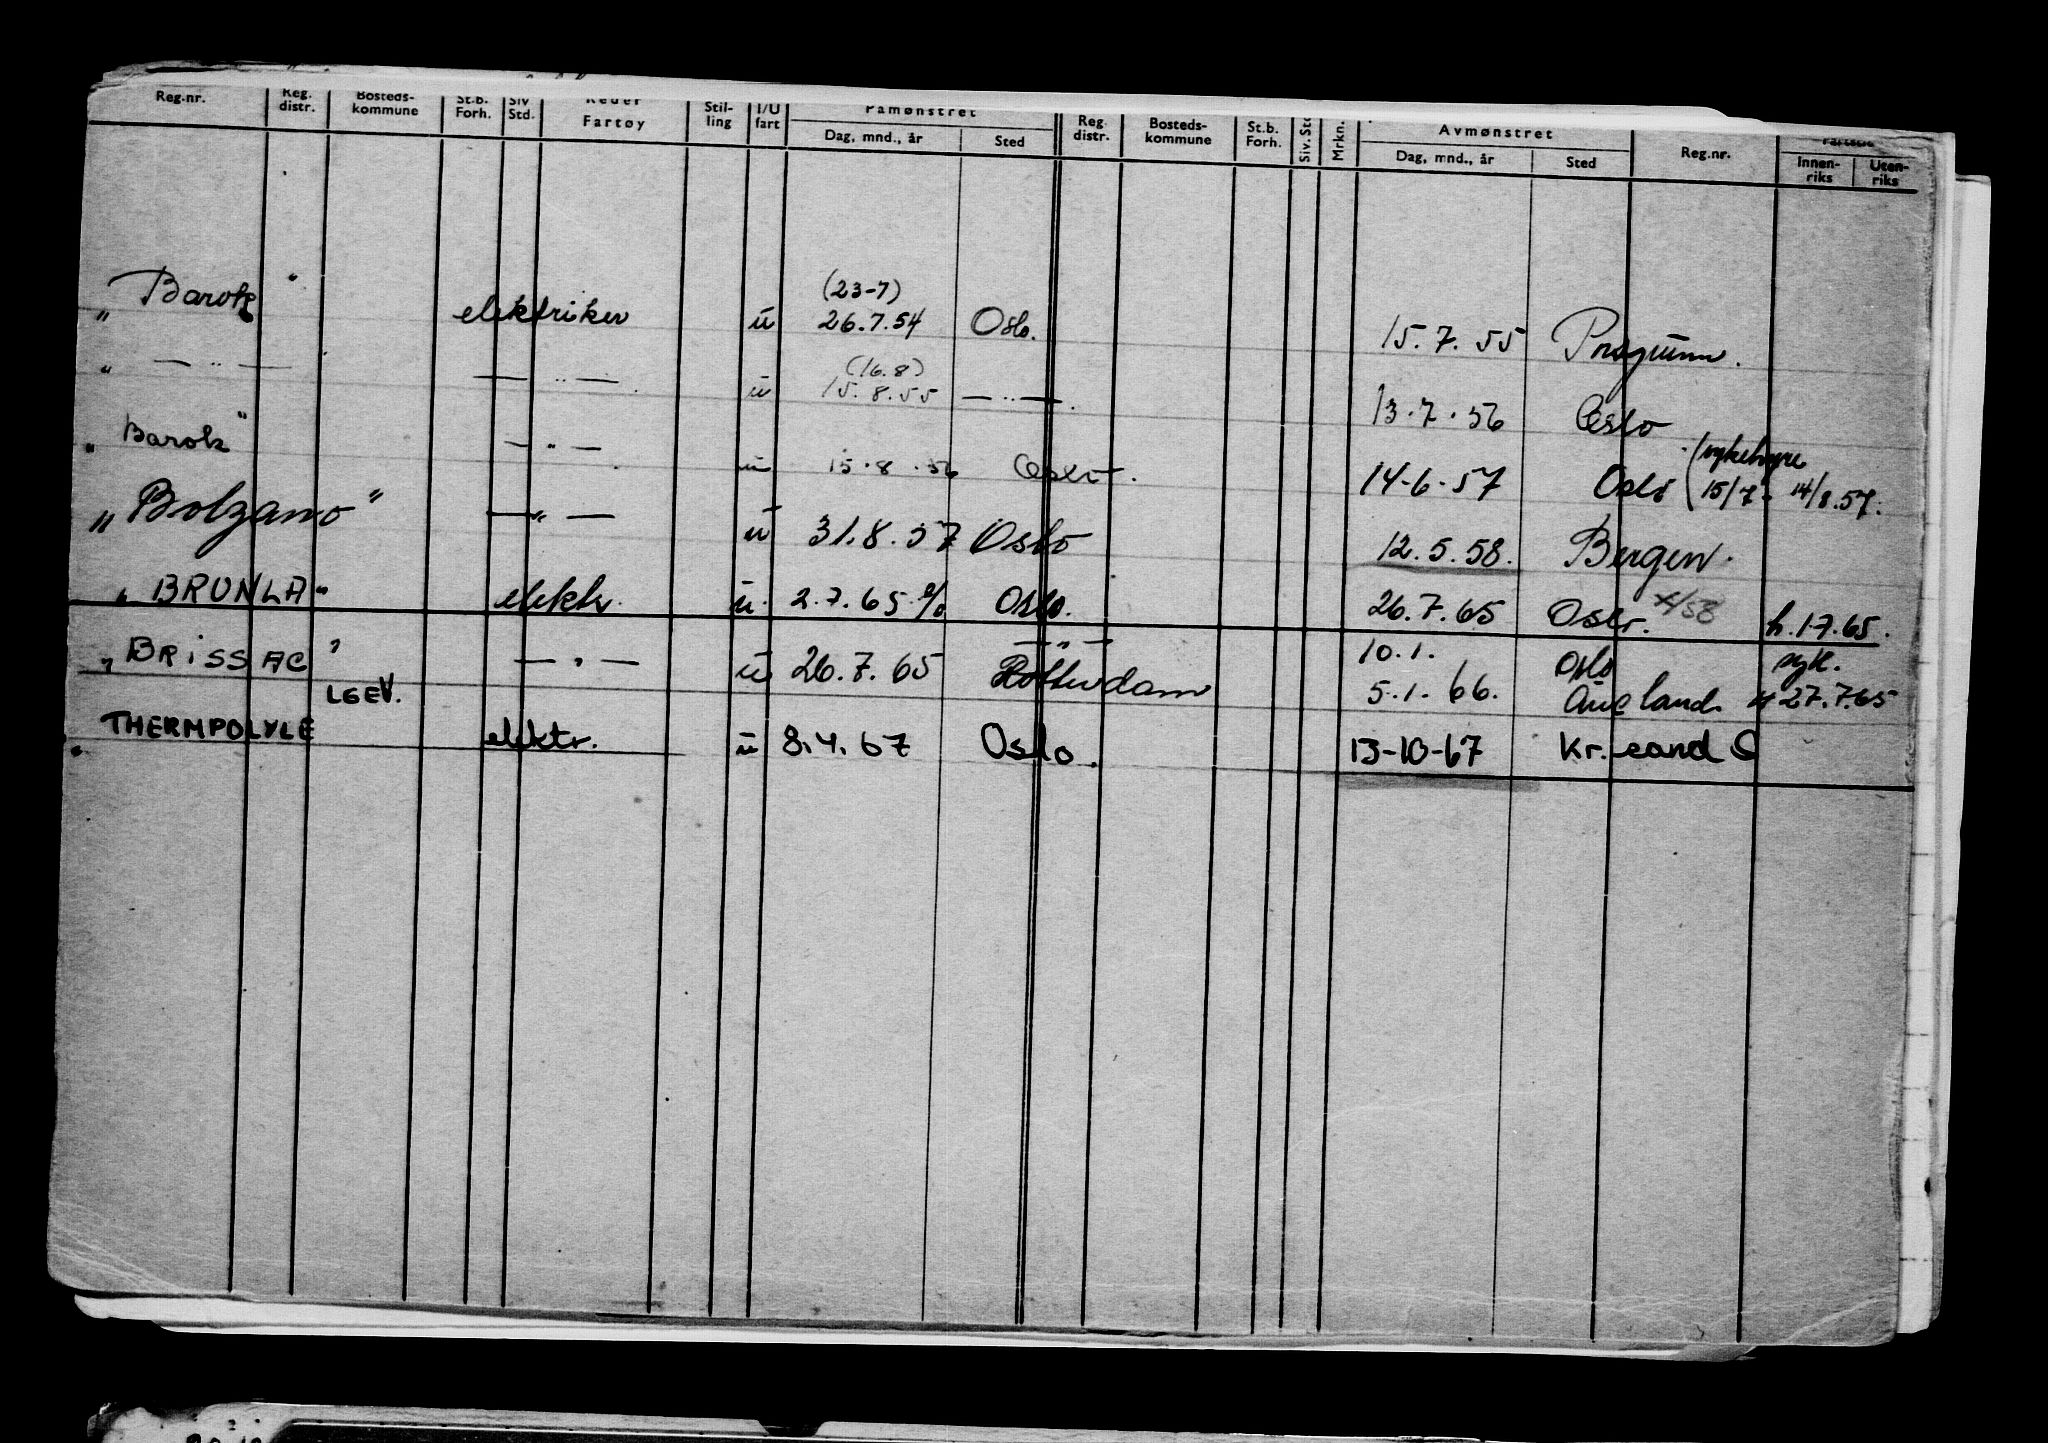 Reg.nr. Reg. distr. Bosteds-kommune St.b. Forh. Siv Std. Reder Fartøy Stil-ling I/U fart Påmønstret Dag, mnd., år Sted Reg distr. Bosteds-kommune St.b. Forh. Siv. Std Mrkn. Avmønstret Dag, mnd., år Sted Reg.nr. Fartstid Innen-riks Uten-riks
(23-7)
" Barok " elektriker u 26.7.54 Oslo. 15.7.55
(16.8)
" — " — — " — . u 15.8.55 — " — . 13.7.56 Oslo
" Barok " — " — . u 15.8.56 Oslo. 14-6-57 Oslo (sykehyre 15/7 - 14/8.57.
" Bolzano " — " — u 31.8.57 Oslo 12.5.58. Bergen.
" BRUNLA " elektr. u. 2.7.65 Oslo. 26.7.65 Oslo. 4/58 h.1.7.65.
— " — 10.1. Oslo syk.
" BRISSAC " — " — u 26.7.65 Rotterdam 5.1.66. 27.7.65
LGEV.
THERMPOLYLE elektr. u 8.4.67 Oslo. 13-10-67 Kr.sand S